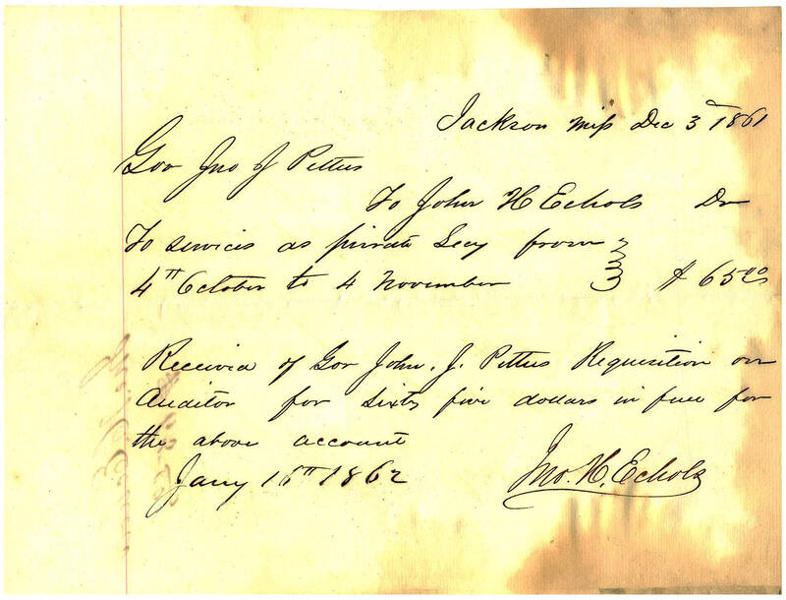 Jackson Miss Dec 3d 1861
Gov Jno J Pettus
To John H Echols Dr
To services as private Secy from
4th October to 4 November $ 65.00
Received of Gov John. J. Pettus Requisition on
Auditor for sixty five dollars in full for
the above account
Jany 16th 1862
Jno. H. Echols